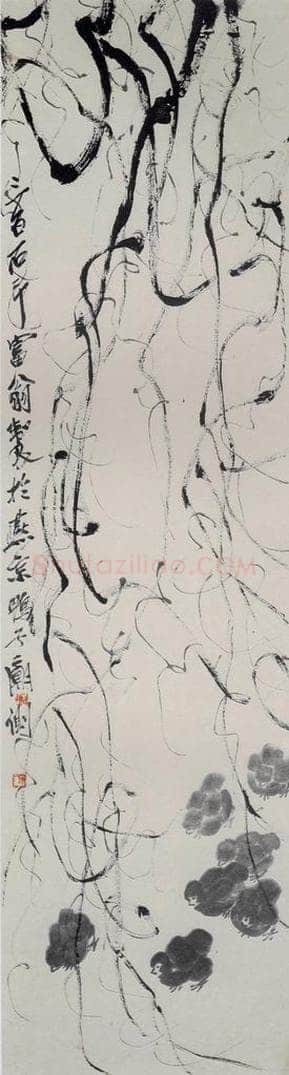 三百石印富翁製於燕京子廟側
Shufaziliao.COM